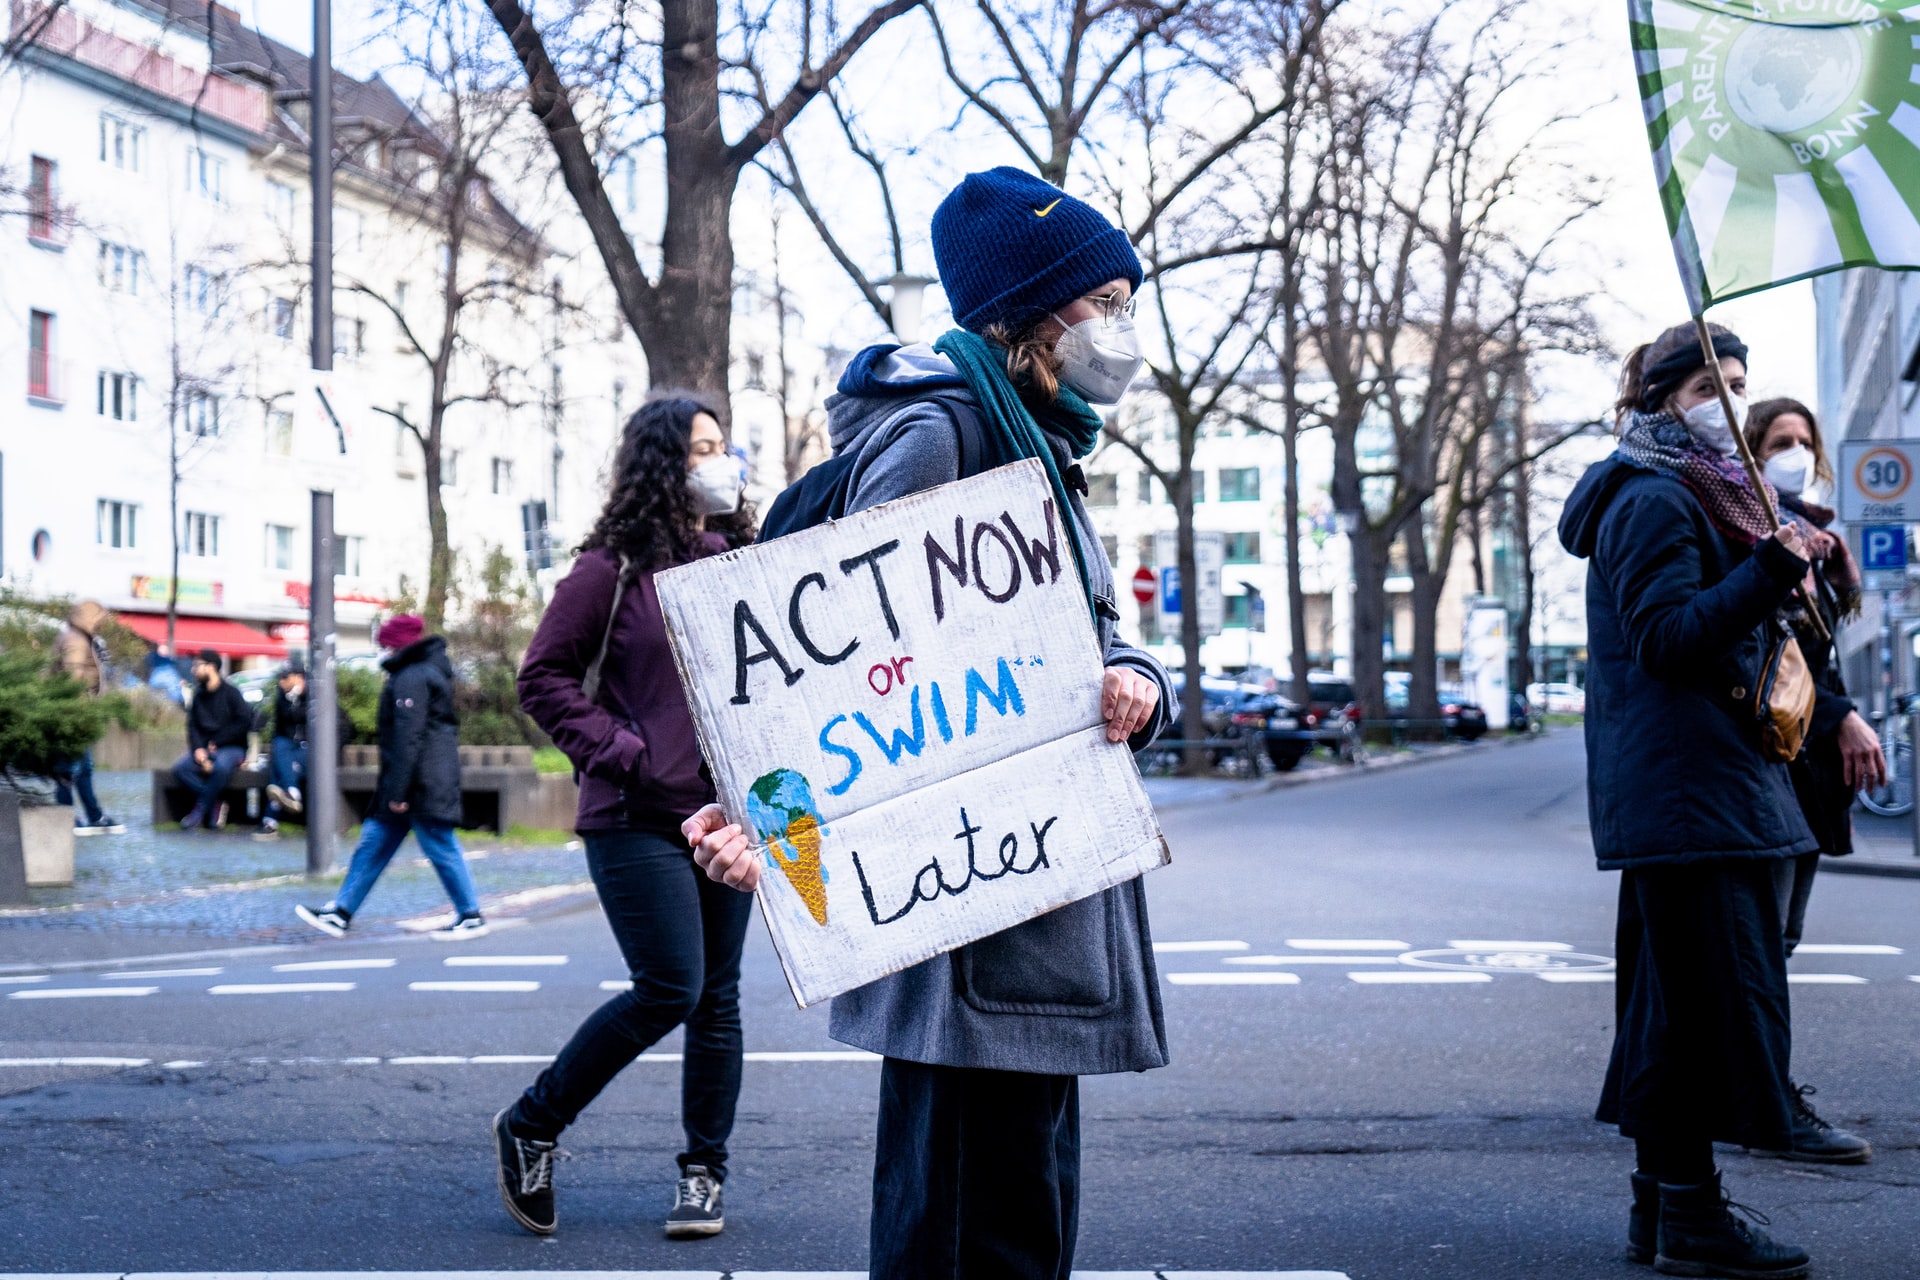 ACT NOW
or
SWIM
Later
PARENTS 4 FUTURE
BONN
30
ZONE
P